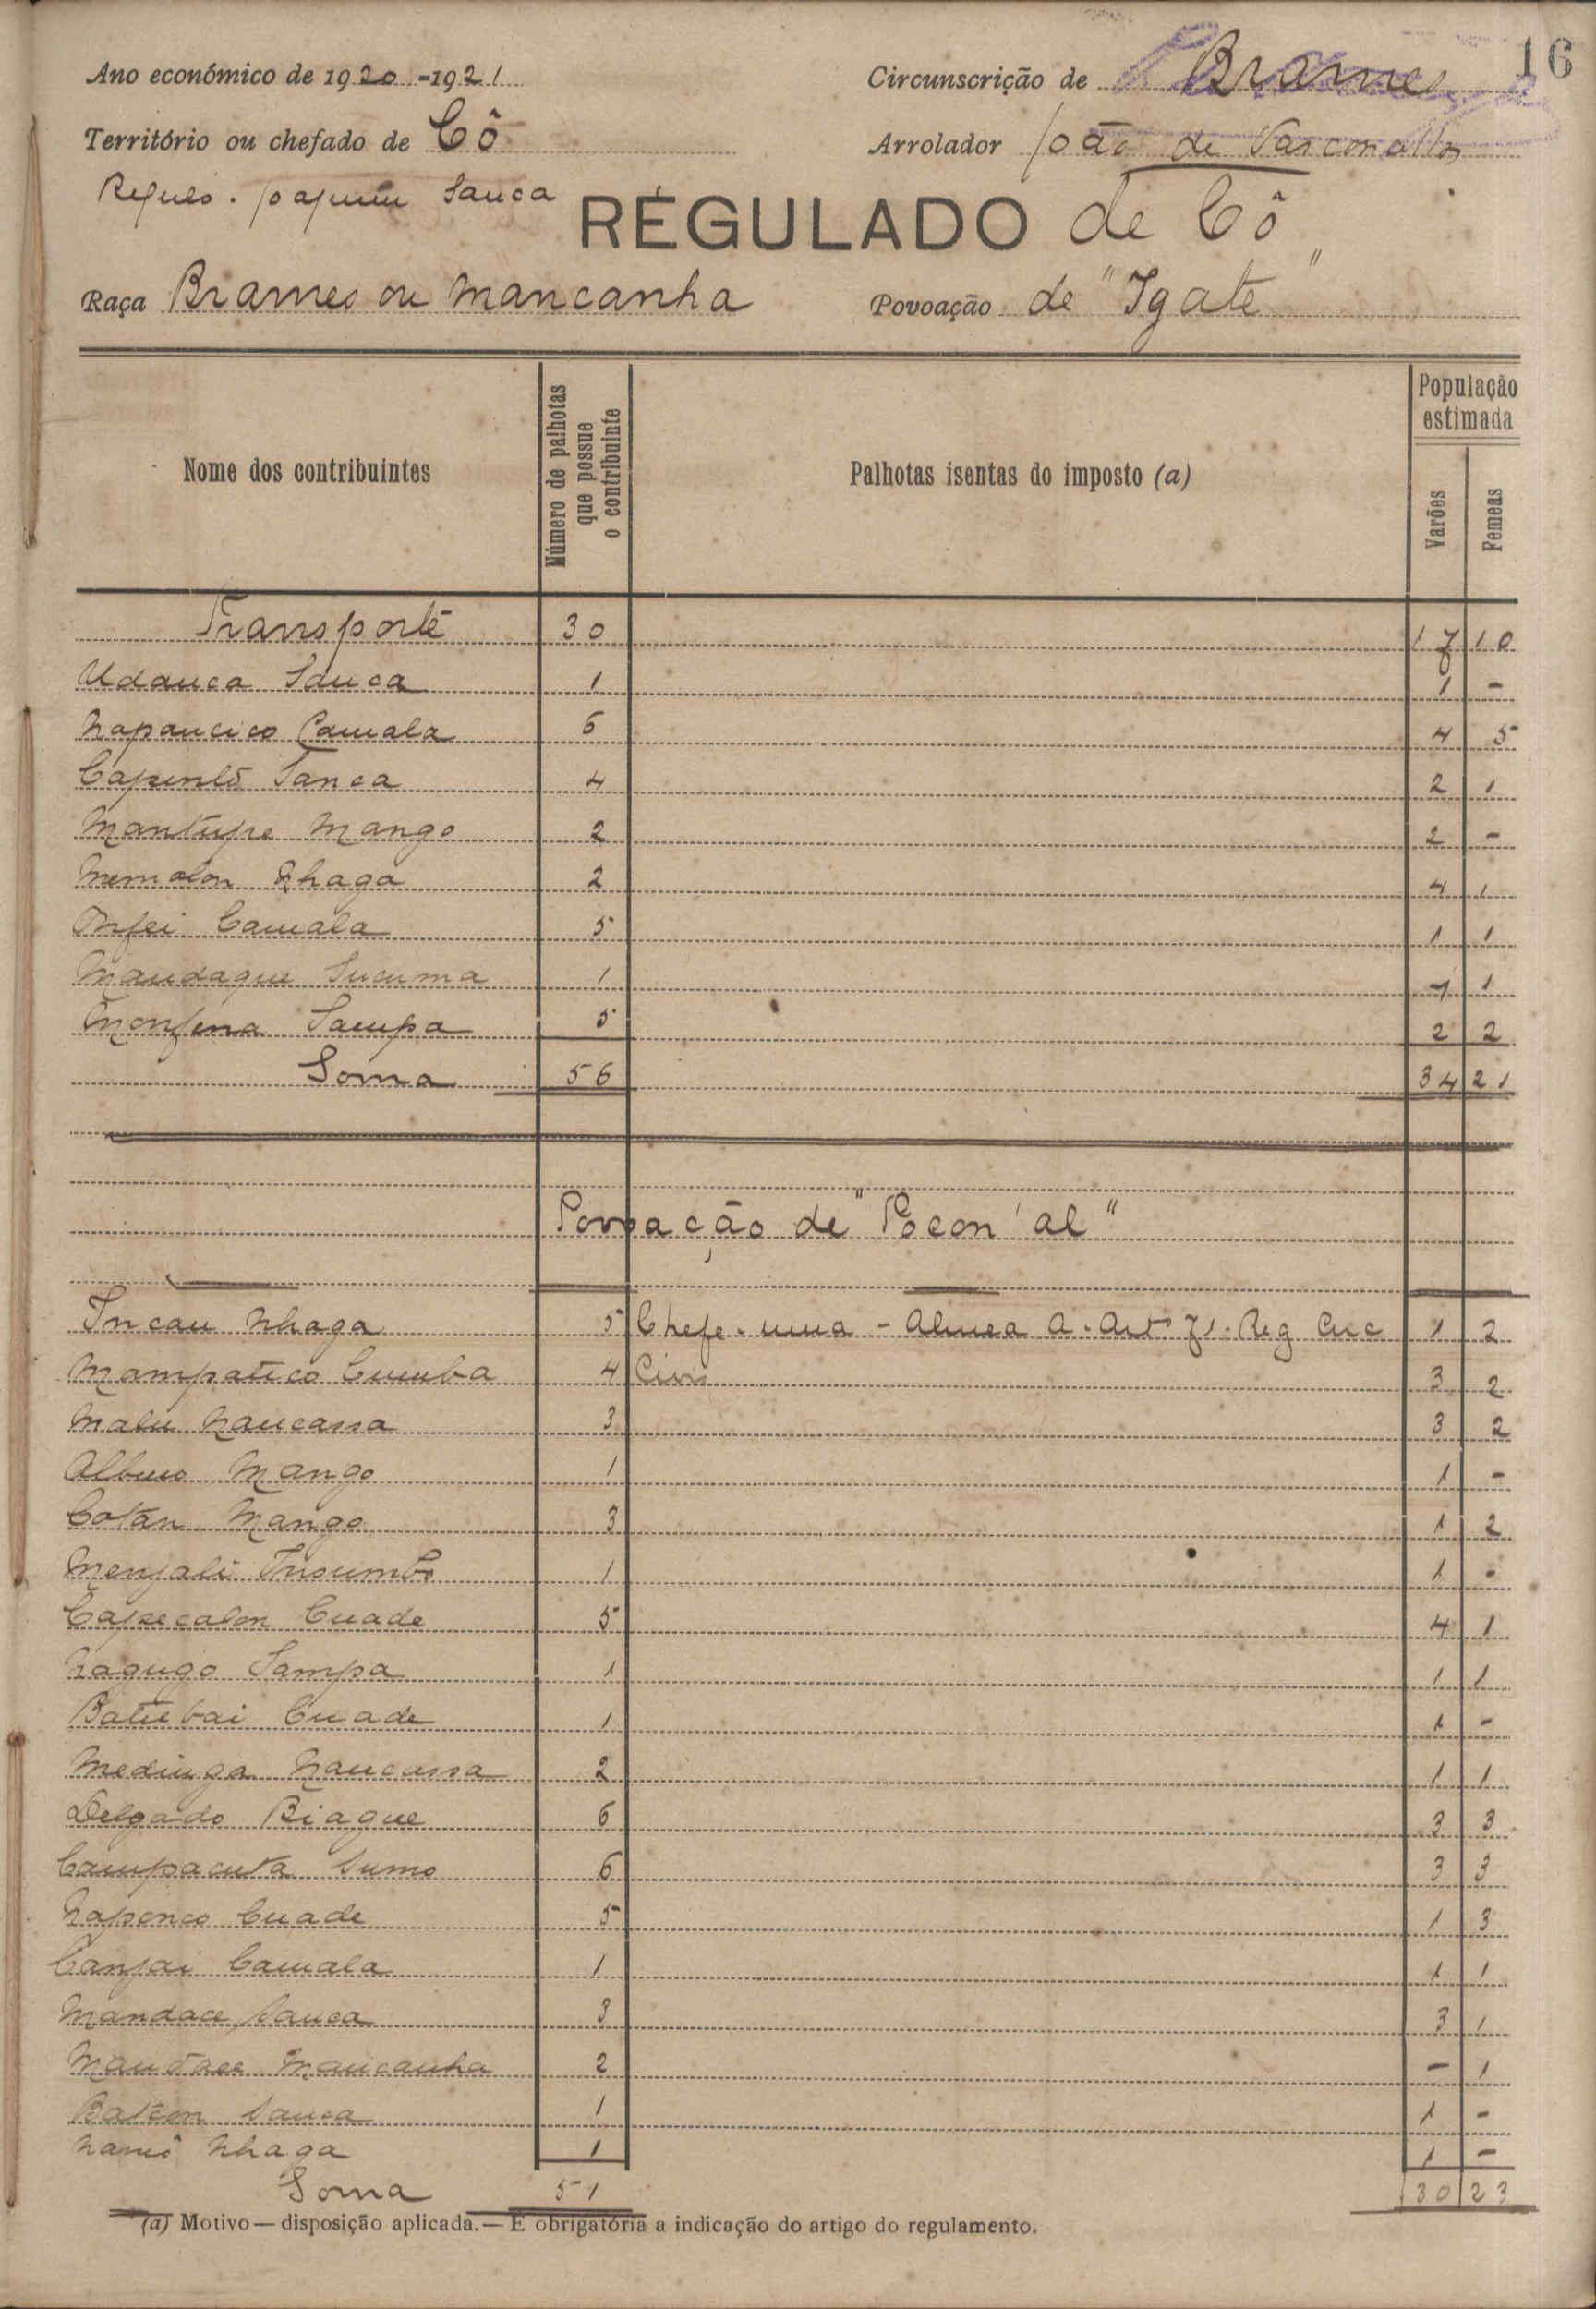 16
Ano económico de 1920-1921
Circunscrição de Brames
Território ou chefado de Cô
Arrolador João de Vasconcellos
Regulo. Joaquim Sanca
RÉGULADO de Cô
Raça Brames ou Mancanha
Povoação de "Igate"
Nome dos contribuintes
Número de palhotas que possue o contribuinte
Palhotas isentas do imposto (a)
População estimada
Varões
Femeas
Transporte 30 17 10
Udanca Sanca 1 1 -
Napancico Camala 6 4 5
Capentô Sanca 4 2 1
Mantupe Mango 2 2 -
Nhaga 2 4 1
Infei Camala 5 1 1
Mandaque Sucuma 1 1 1
Monfena Sampa 5 2 2
Soma 56 34 21
Povoação de "Pocon'al"
Incau Nhaga 5 Chefe. uma - Alinea a. Artº 71. Reg Circ 1 2
Mampatico Cumba 4 Civis 3 2
Malu Naucassa 3 3 2
Albino Mango 1 1 -
Cotan Mango 3 1 2
Menjali Insumbo 1 1 -
Capecalon Cuade 5 4 1
Nagugo Sampa 1 1 1
Batiebai Cuade 1 1 -
Medinga Naucassa 2 1 1
Delgado Biague 6 3 3
Campacuta Sumo 6 3 3
Naponco Cuade 5 1 3
Canjai Camala 1 1 1
Mandace Sanca 3 3 1
Mancanha 2 - 1
Batcon Sanca 1 1 -
Namô Nhaga 1 1 -
Soma 51 30 23
(a) Motivo — disposição aplicada. — É obrigatória a indicação do artigo do regulamento.